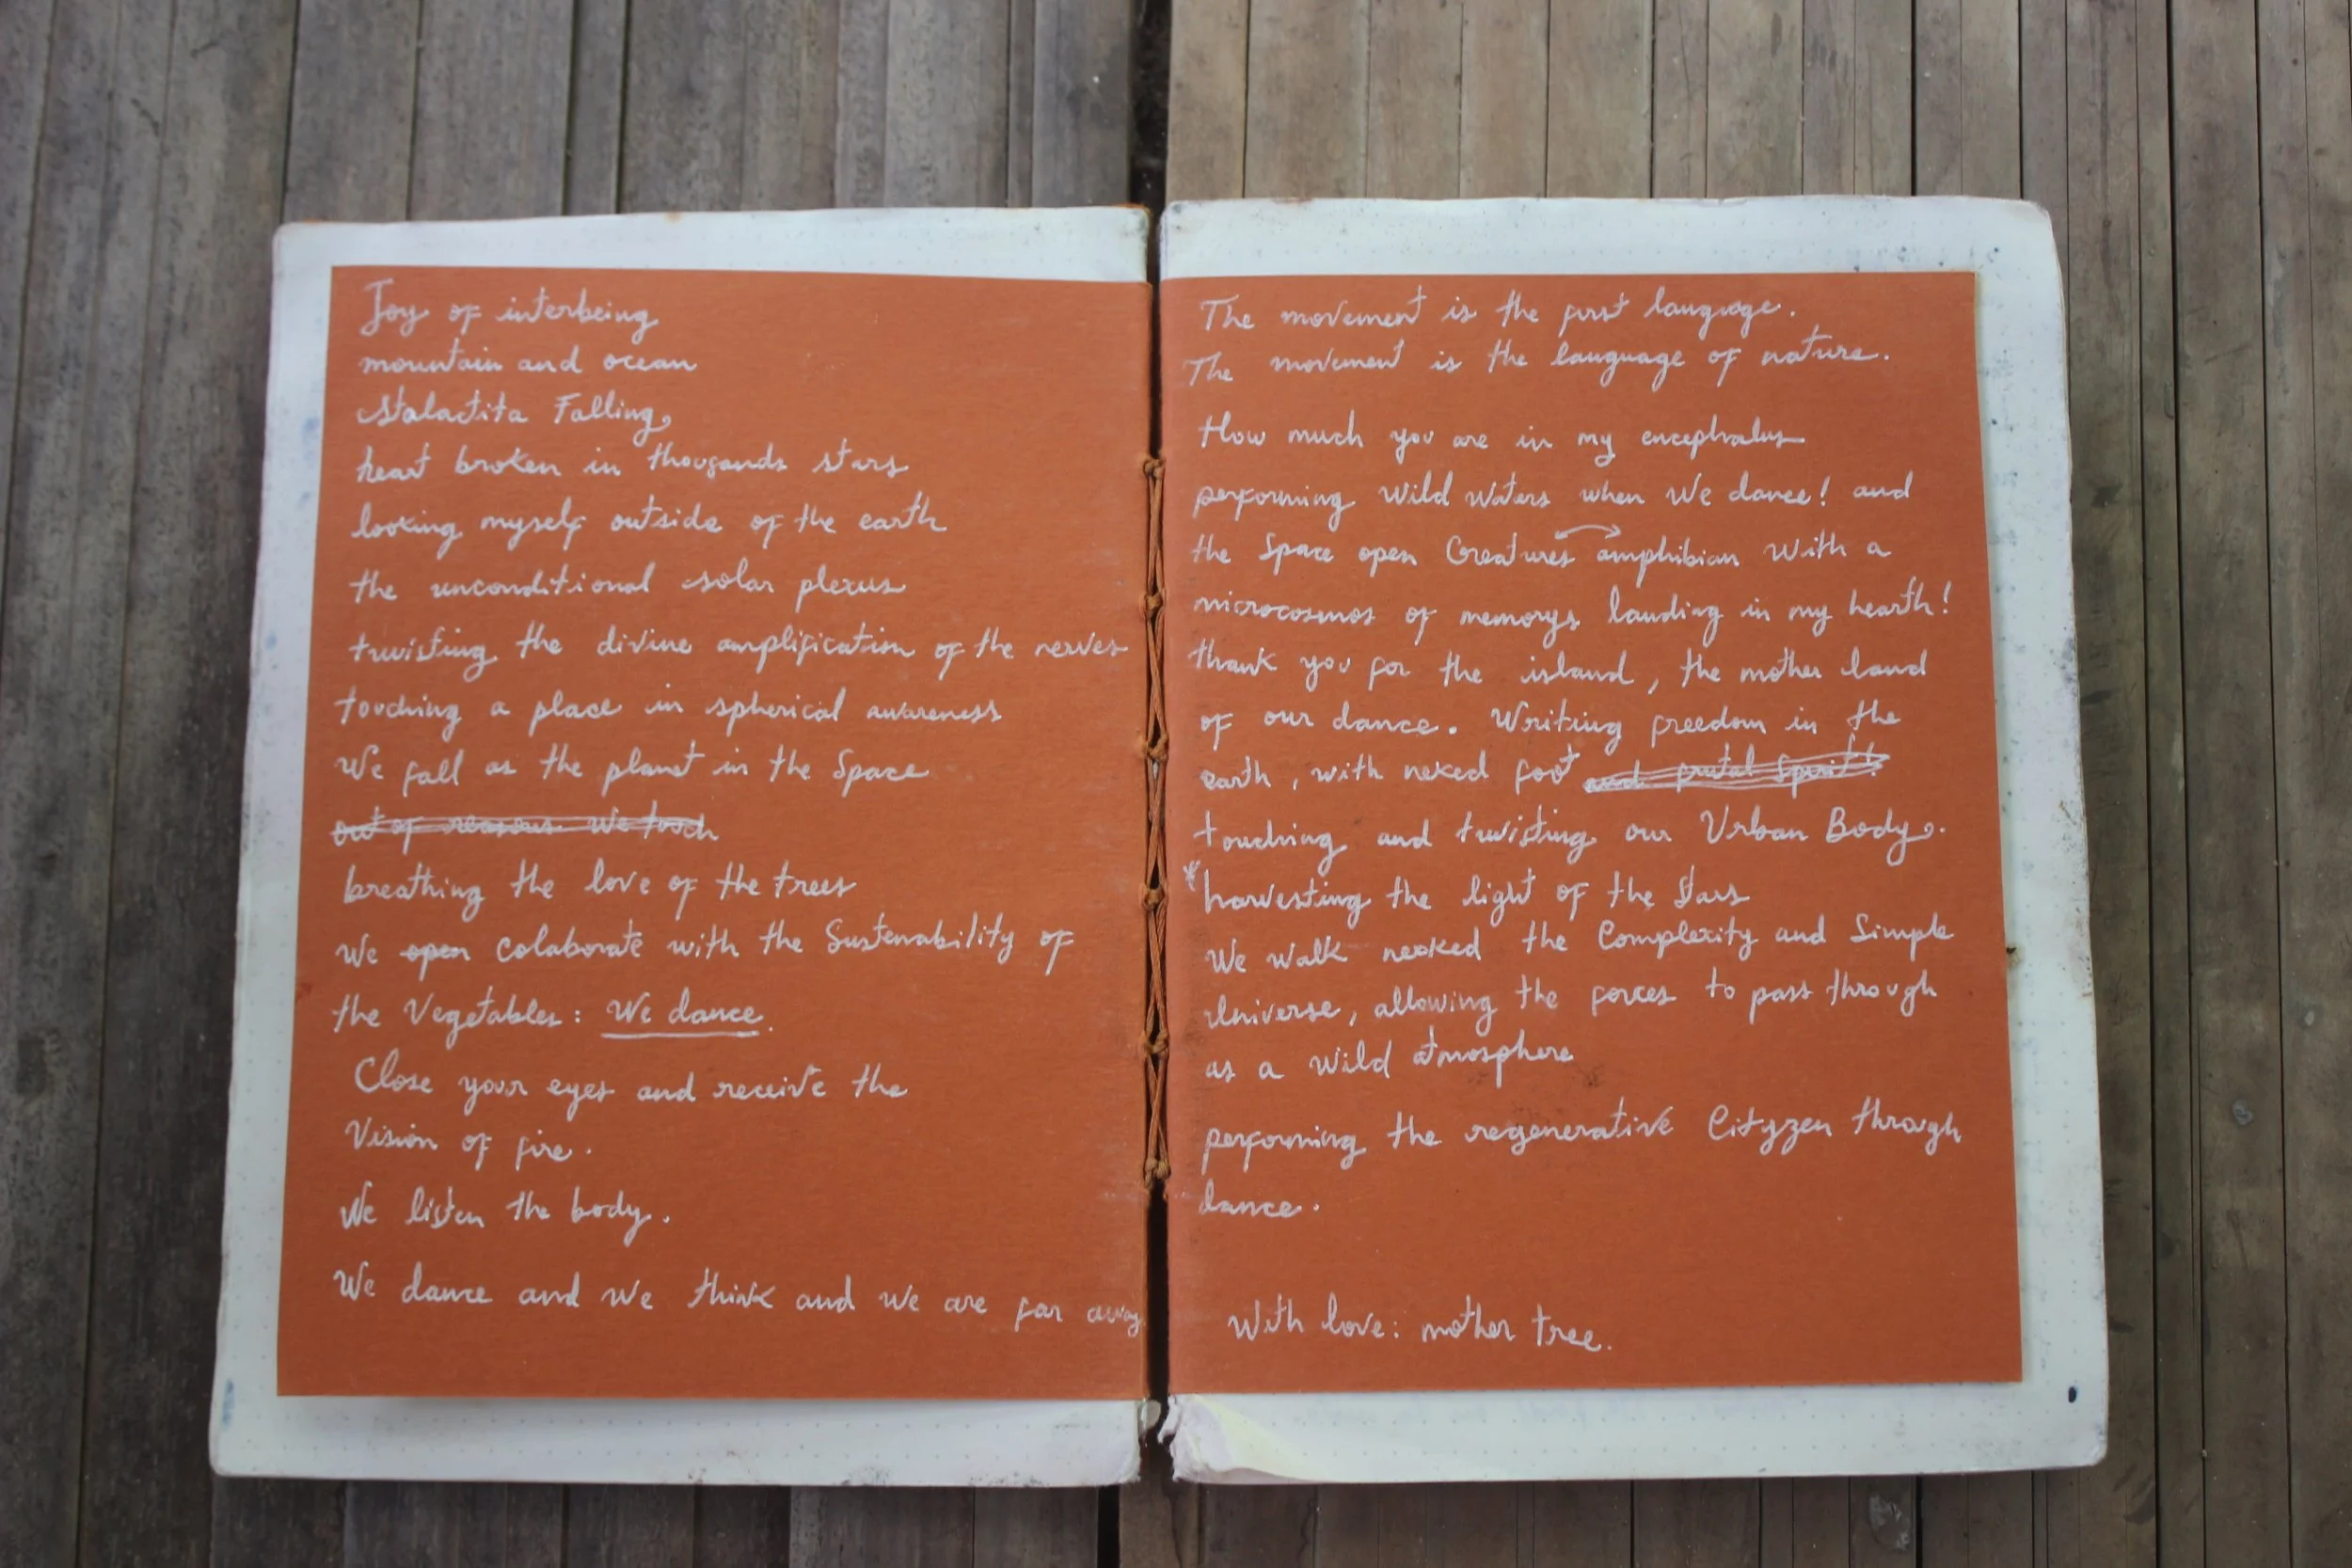 Joy of interbeing
mountain and ocean
Stalactita Falling
heart broken in thousands stars
looking myself outside of the earth
the unconditional solar plexus
twisting the divine amplification of the nerves
touching a place in spherical awareness
We fall as the planet in the Space
out of reasons we touch
breathing the love of the trees
We open colaborate with the Sustenability of
the Vegetables: We dance.
Close your eyes and receive the
Vision of fire.
We listen the body.
We dance and we think and we are far away
The movement is the first language.
The movement is the language of nature.
How much you are in my encephalus
performing Wild Waters when We dance! and
the Space open Creatures amphibian With a
microcosmos of memorys landing in my hearth!
thank you for the island, the mother land
of our dance. Writing freedom in the
earth, with neked foot and spirit!
touching and twisting our Urban Body.
*harvesting the light of the Stars
We walk neoked the Complexity and Simple
Universe, allowing the forces to pass through
as a wild atmosphere
performing the regenerative Cityzen through
dance.
With love: mother tree.